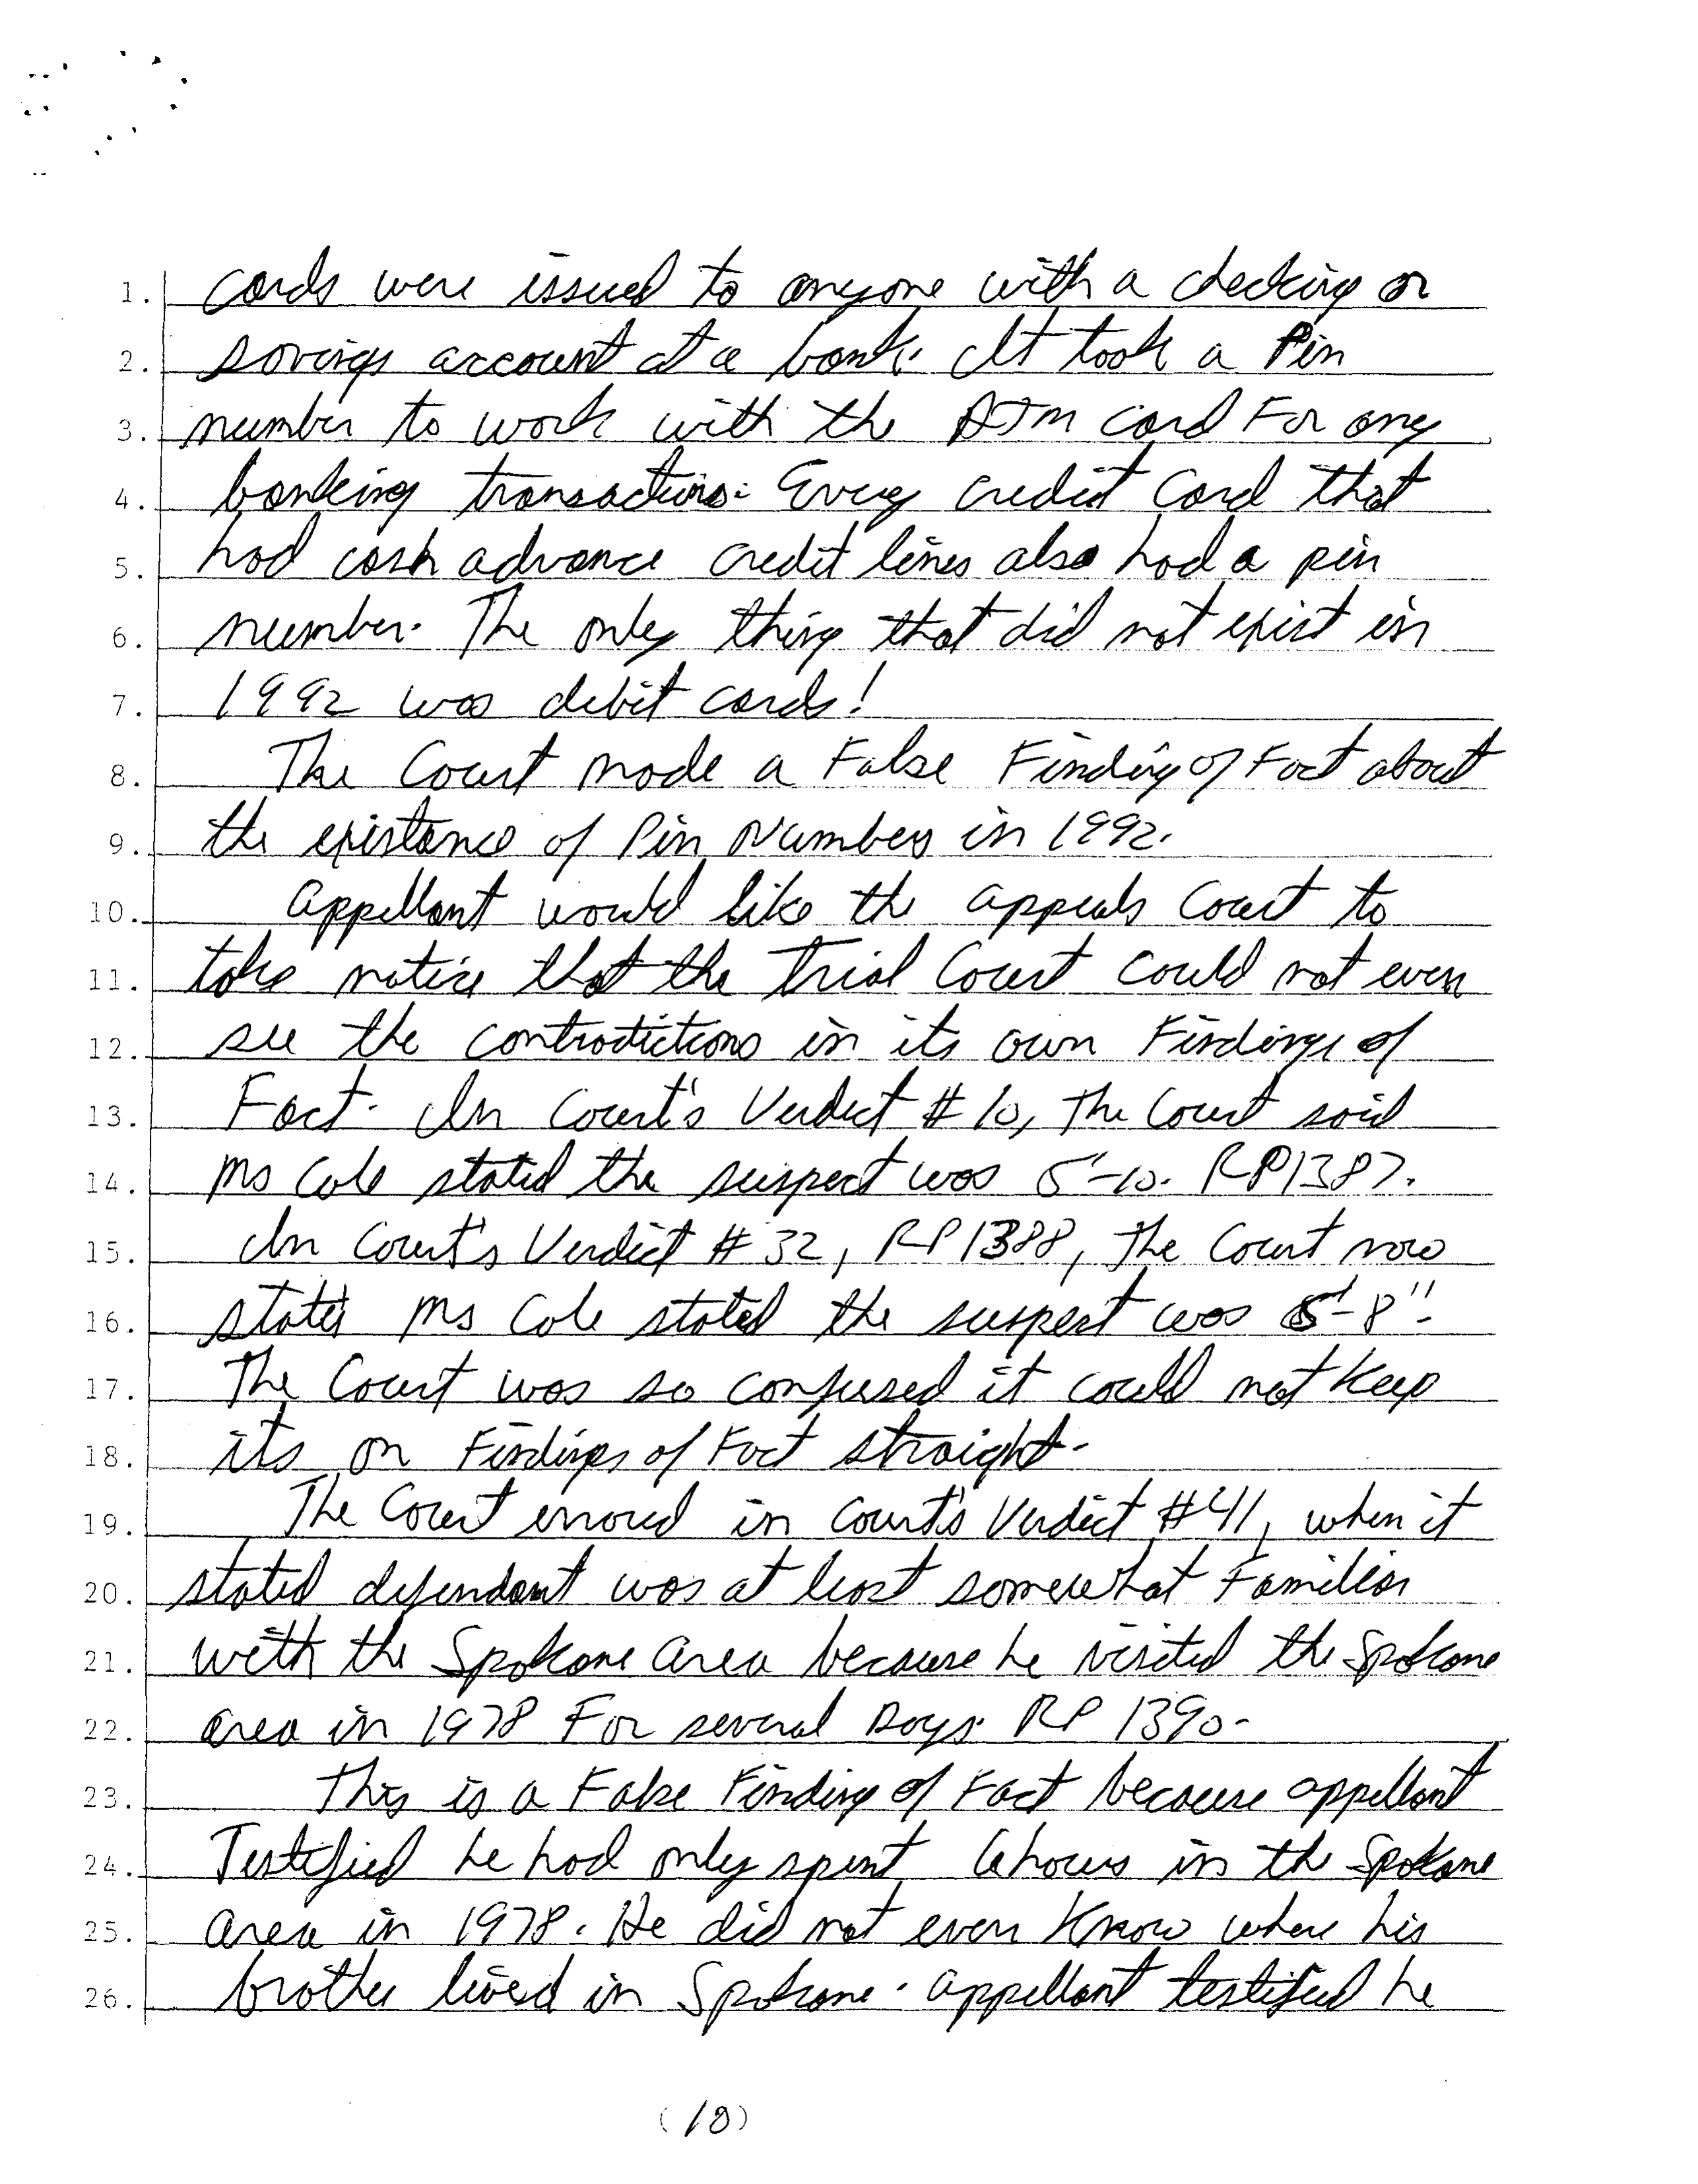 1. cards were issued to anyone with a checking or
2. savings account at a bank. It took a Pin
3. number to work with the ATM card For any
4. banking transactions. Every credit Card that
5. had cash advance credit lines also had a pin
6. number. The only thing that did not exist in
7. 1992 was debit cards!
8. The Court made a False Finding of Fact about
9. the existance of Pin Numbers in 1992.
10. Appellant would like the appeals Court to
11. take notice that the Trial Court could not even
12. see the contradictions in its own Findings of
13. Fact. In Court's Verdict # 10, The Court said
14. Ms Cole stated the suspect was 5'-10. RP1387.
15. In Court's Verdict # 32, RP 1388, The Court now
16. states Ms Cole stated the suspect was 5'-8".
17. The Court was so confused it could not keep
18. its on Findings of Fact straight.
19. The Court errored in Court's Verdict #41, when it
20. stated defendant was at least somewhat Familiar
21. with the Spokane area because he visited the Spokane
22. area in 1978 For several Days. RP 1390.
23. This is a False Finding of Fact because appellant
24. Testified he had only spent 6 hours in the Spokane
25. area in 1978. He did not even Know where his
26. brother lived in Spokane. appellant testified he
(18)